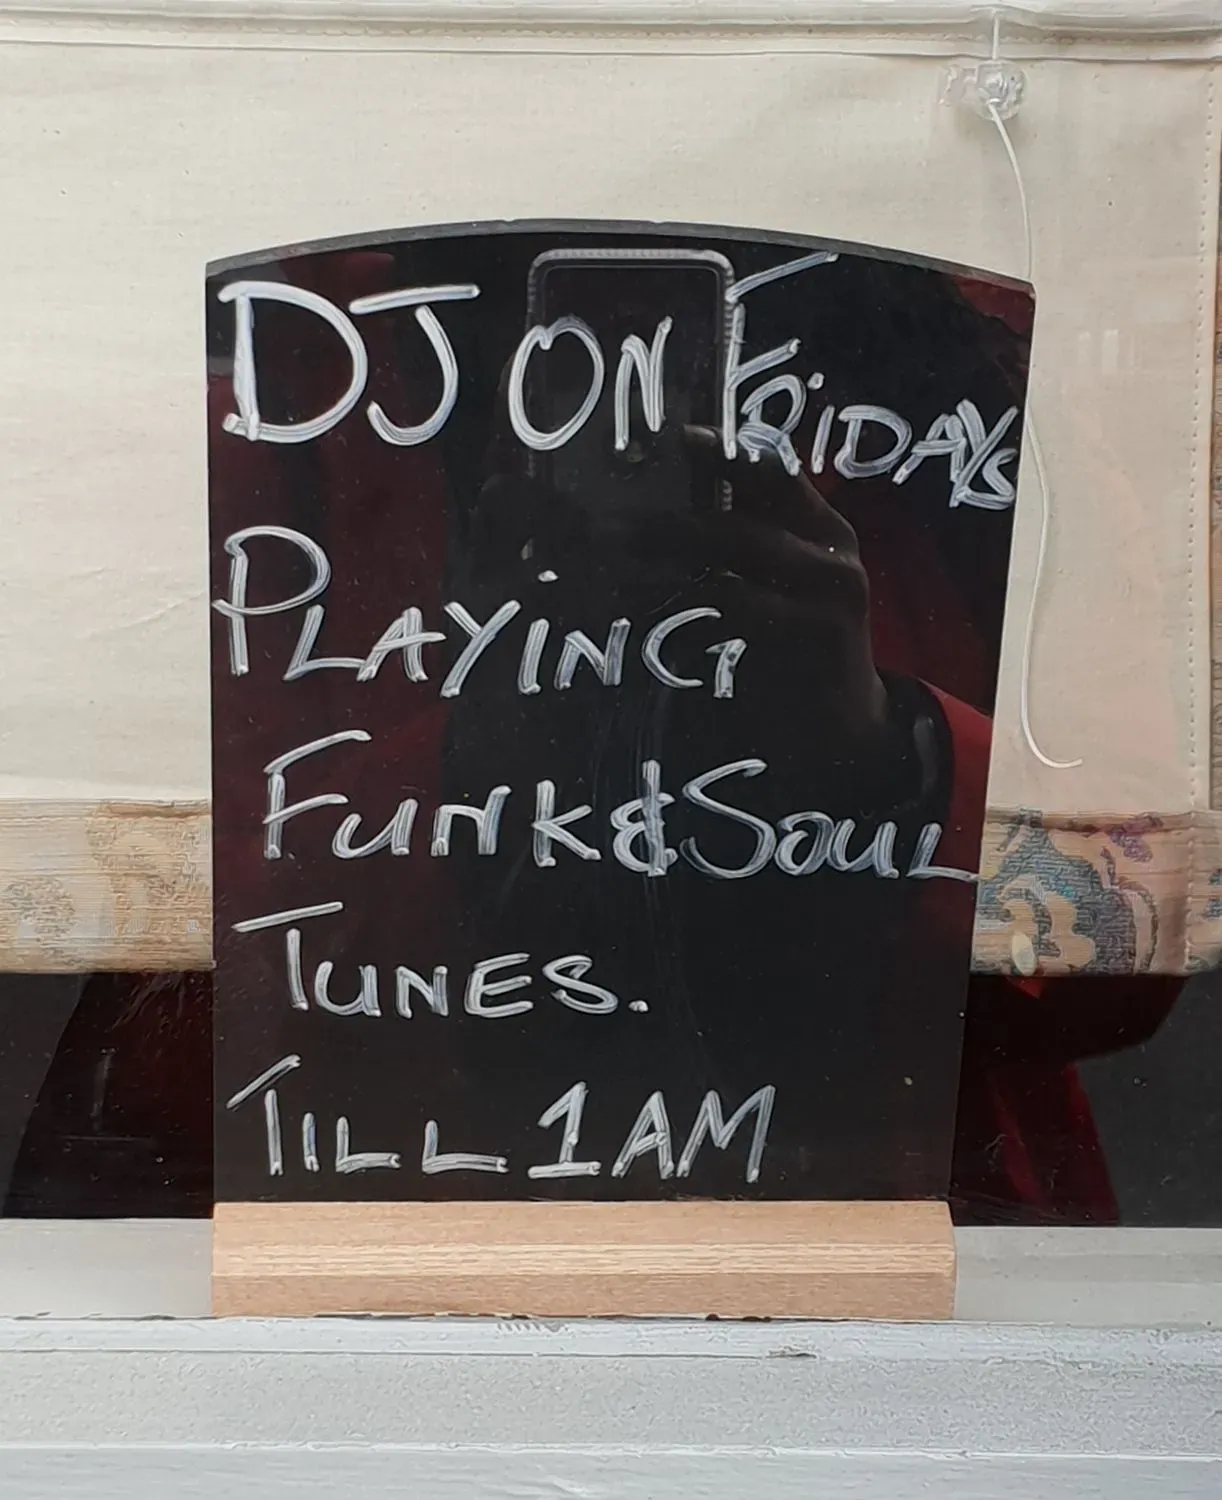 DJ ON FRiDAYS
PLAYiNG
FuNK & SouL
TuNES.
TILL 1AM